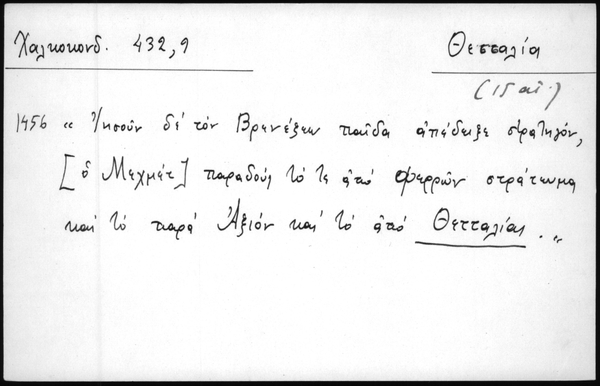 Χαλκοκονδ. 432,9
Θεσσαλία
(15 αἰ.)
1456 « Ἰησοῦν δέ τόν Βρενέζεω παῖδα ἀπέδειξε στρατηγόν,
[ὁ Μεχμέτ] παραδούς τό τε ἀπό Φερρῶν στράτευμα
καί τό παρά Ἀξιόν καί τό ἀπό Θετταλίας. »